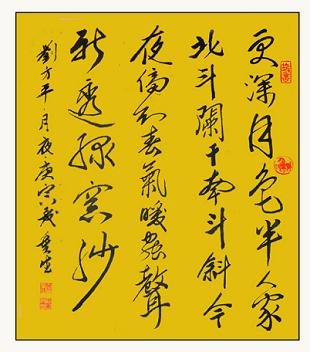 更深月色半人家
北斗闌干南斗斜今
夜偏知春氣暖蟲聲
新透綠窗紗
劉方平月夜庚寅